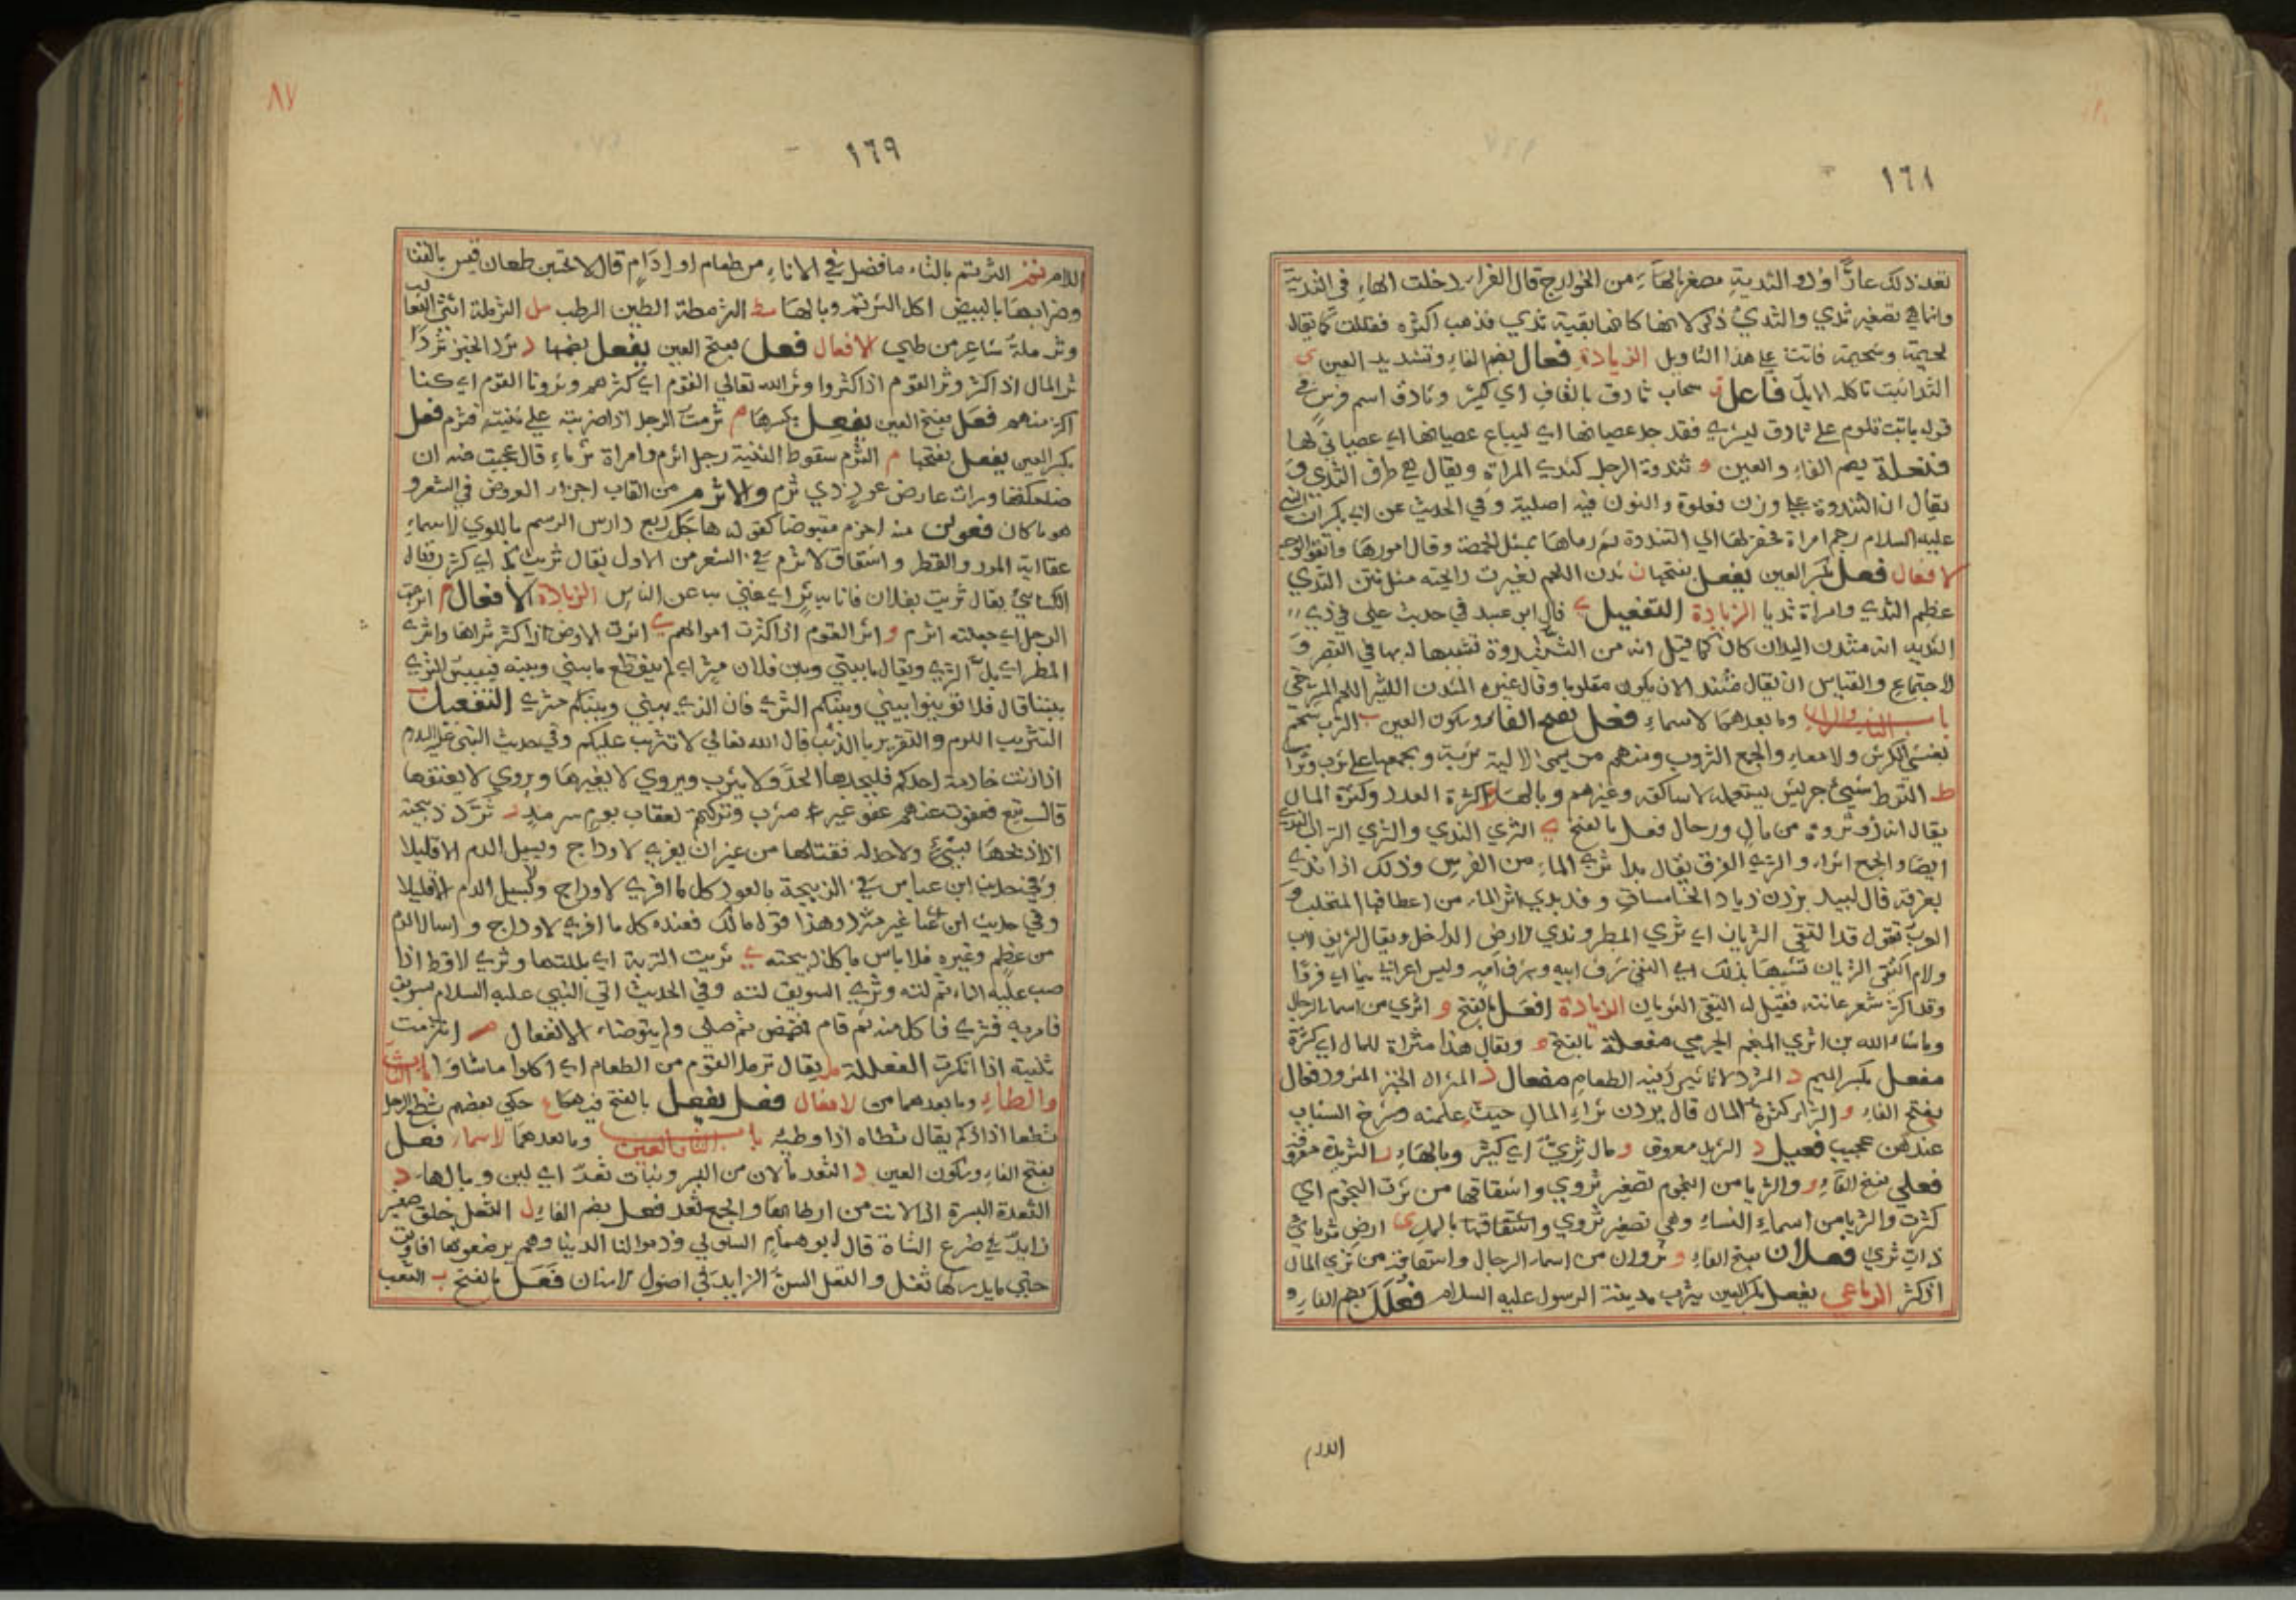 ١٦٨
تعد ذلك عارًا وذو الثدية مصغر بالهاء من الخوارج قال الفراء ادخلت الهاء في الثدية
وانما هي تصغير ثدي والثدي ذكر لانها كانها بقية ثدي فذهب اكثره فقللت كما يقال
لحيمة وشحيمة فانث على هذا التاويل الزيادة فعال بضم الفاء وتشديد العين ى
الثدا نبت تاكله الابل فاعل ق سحاب ثادق بالقاف اي كثير وثادق اسم فرس في
قوله باتت تلوم على ثادق ليشرى فقد جد عصيانها اي ليباع عصيانها اي عصياني لها
فنعلة بضم الفاء والعين و ثندوة الرجل كثدي المراة ويقال هي طرف الثدي و
يقال ان الثندوة على وزن فعلوة والنون فيه اصلية وفي الحديث عن ابي بكر ان النبي
عليه السلام رجم امراة فحفر لها الى الثندوة ثم رماها بمثل الحمصة وقال ارموها واتقوا الوجه
الافعال فعل بكسر العين يفعل بفتحها ن ثدن اللحم تغيرت رايحته مثل نتن الثدي
عظيم الثدي وامراة ثديا الزيادة التفعيل ي قال ابن عبيد في حديث علي في ذي
الثدية انه مثدن اليدان كان كما قيل انه من الثندوة تشبيها له بها في القصر و
الاجتماع والقياس ان يقال مثند الا ان يكون مقلوبا وقال غيره المثدن الكثير اللحم المسترخي
باب الثاء والراء وما بعدهما الاسماء فعل بفتح الفاء وسكون العين ب الثرب شحم
يغشي الكرش والامعاء والجمع الثروب ومنهم من يسمي الالية ثربة ويجمعها على ثرب وثراب
ط الثرط شيء جريش يستعمله الاساكفة وغيرهم وبالهاء و الثروة كثرة العدد وكثرة المال
يقال انه لذو ثروة من مال ورجال فعل بالفتح ي الثري الندي والثري التراب الندي
ايضا والجمع اثراء والثري العرق يقال بدا ثري الماء من الفرس وذلك اذا ندي
بعرقه قال لبيد
العرب تقول قد التقى الثريان اي ثري المطر وندي الارض الداخل ويقال
ولام التقى الثريان تشبيها بذلك اي التقى شرف ابيه وشرف امه ولبس اعرابي ثيابا اي فروا
وقد اكثر شعر عانته فقيل له التقى الثريان الزيادة افعل بالفتح و اثري من اسماء الرجال
وما شاء الله بن اثري المنجم الجرمي مفعلة بالفتح و ويقال هذا مثراة للمال اي كثرة
مفعل بكسر الميم د المثرد الاناء يثرد فيه الطعام مفعال د المثراد الخبز المثرود فعال
بفتح الفاء و الثراء كثرة المال قال يردن ثراء المال حيث علمنه وشرخ الشباب
عندهن عجيب فعيل د الثريد معروف و مال ثري اي كثير وبالهاء د الثريدة معروفة
فعلي بفتح الفاء و والثريا من النجوم تصغير ثروي واشتقاقها من ثرت النجوم اي
كثرت والثريا من اسماء النساء وهي تصغير ثروي واشتقاقها بالمد ى ارض ثريا اي
ذات ثري فعلان بفتح الفاء و ثروان من اسماء الرجال واشتقاقه من ثري المال
اذا كثر الرباعي يفعل بكسر العين يثرب مدينة الرسول عليه السلام فعلل بضم الفاء و
اللام
٨٧
١٦٩
اللام تم الثرتم بالتاء ما فضل في الاناء من طعام او ادام قال لا تحسبن طعان قيس بالقنا
وضرابها بالبيض اكل الثرتم وبالهاء ط الثرمطة الطين الرطب مل الثرملة انثى الثعالب
وثرملة شاعر من طيي الافعال فعل بفتح العين يفعل بضمها د ثرد الخبز ثردا
ثر المال اذا كثر وثر القوم اذا كثروا وثر الله تعالى القوم اي كثرهم وثرونا القوم اي كنا
اكثر منهم فعل بفتح العين يفعل بكسرها م ثرمت الرجل اذا ضربته على ثنيته فثرم فعل
بكسر العين يفعل بفتحها م الثرم سقوط الثنية رجل اثرم وامراة ثرماء قال عجبت منه ان
ضاحكتها ورات عارض عود ذي ثرم والاثرم من القاب اجزاء العروض في الشعر و
هو ما كان فعولن منه اخرم مقبوضا كقوله هاجك ربع دارس الرسم باللوي لاسماء
عفا ايه المور والقطر واشتقاق الاثرم في الشعر من الاول يقال ثريت بك اي كثرت قال
الكسائي يقال ثريت بفلان فانا به ثر اي غني به عن الناس الزيادة الافعال م اثرمت
الرجل اي جعلته اثرم و اثر القوم اذا كثرت اموالهم ي اثرت الارض اذا كثر ثراها واثري
المطر اي بل الثري ويقال ما بيني وبين فلان مثر اي لم ينقطع ما بيني وبينه فييبس الثري
بيننا قال فلا توبسوا بيني وبينكم الثري فان الذي بيني وبينكم مثري التفعيل ب
التثريب اللوم والتقرير بالذنب قال الله تعالى لا تثريب عليكم وفي حديث النبي عليه السلام
اذا زنت خادمة احدكم فليجلدها الحد ولا يثرب ويروي لا يعيرها ويروي لا يعنفها
قال تبع فعفوت عنهم عفو غير مثرب وتركتهم لعقاب يوم سرمد د ثرد ذبيحته
اذا ذبحها بشيء لا حد له فقتلها من غير ان يفري الاوداج ويسيل الدم الا قليلا
وفي حديث ابن عباس في الذبيحة بالعود كل ما افري الاوداج ولا يسيل الدم الا قليلا
وفي حديث ابن عباس غير مثرد وهذا قول مالك فعنده كل ما افري الاوداج واسال الدم
من عظم وغيره فلا باس باكل ذبيحته ي ثريت التربة اي بللتها وثري الاقط اذا
صب عليه الماء ثم لته وثري السويق لته وفي الحديث اتي النبي عليه السلام بسويق
فامر به فثري فاكل منه ثم قام فمضمض ثم صلى ولم يتوضاء الانفعال م انثرمت
ثنيته اذا انكسرت الفعللة مل يقال ثرمل القوم من الطعام اي اكلوا ما شاؤا باب الثاء
والطاء وما بعدهما من الافعال فعل يفعل بالفتح فيهما ع حكي بعضهم ثطع الرجل
ثطعا اذا زكم يقال ثطاه اذا وطيه باب الثاء والعين وما بعدهما الاسماء فعل
بفتح الفاء وسكون العين د الثعد ما لان من البسر ونبات ثعد اي لين وبالهاء د
الثعدة البسرة اذا لانت من ارطابها والجمع ثعد فعل بضم الفاء ل الثعل خلف صغير
زايد في ضرع الشاة قال ابو همام السلولي وذموا لنا الدنيا وهم يرضعونها افاويق
حتى ما يدر لها ثعل والثعل السن الزايد في اصول الاسنان فعل بالفتح ب الثعب